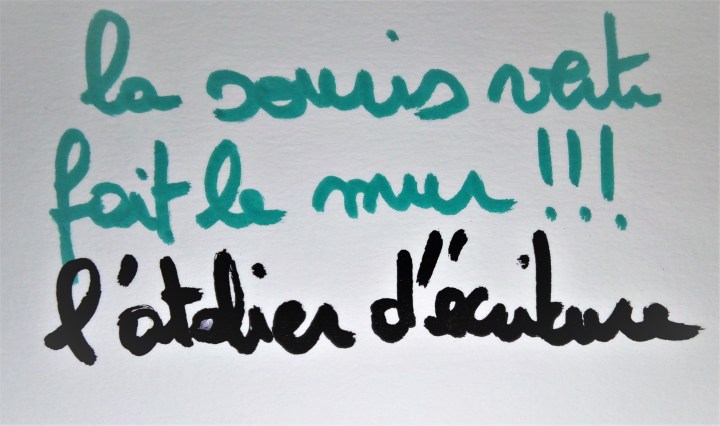 la souris verte
fait le mur !!!
l'atelier d'écriture